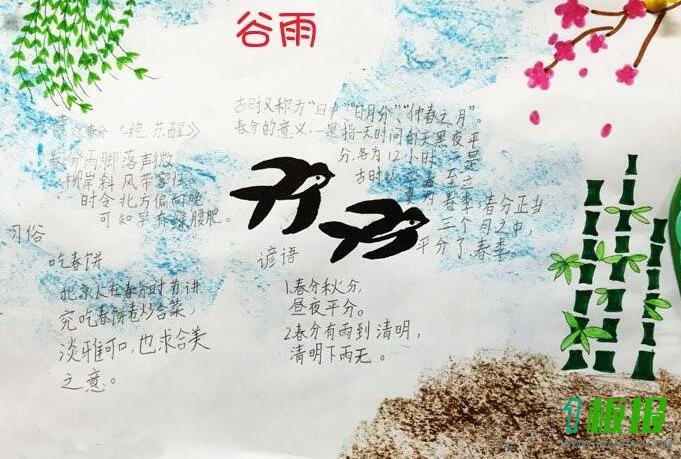 谷雨
春分 七绝 苏醒》
春分雨脚落声微
柳岸斜风带客归
时令北方偏向晚
可知早有绿腰肥。
古时又称为“日中”“日月分”、“仲春之月”。
春分的意义,一是指一天时间白天黑夜平
分,各为12小时 二是
古时以立春至立
夏为春季,春分正当
三个月之中,
平分了春季。
习俗
吃春饼
北京人在春分时节讲
究吃春饼卷炒合菜,
淡雅可口,也求合美
之意。
谚语
1.春分秋分,
昼夜平分。
2春分有雨到清明,
清明下雨无 。
板报